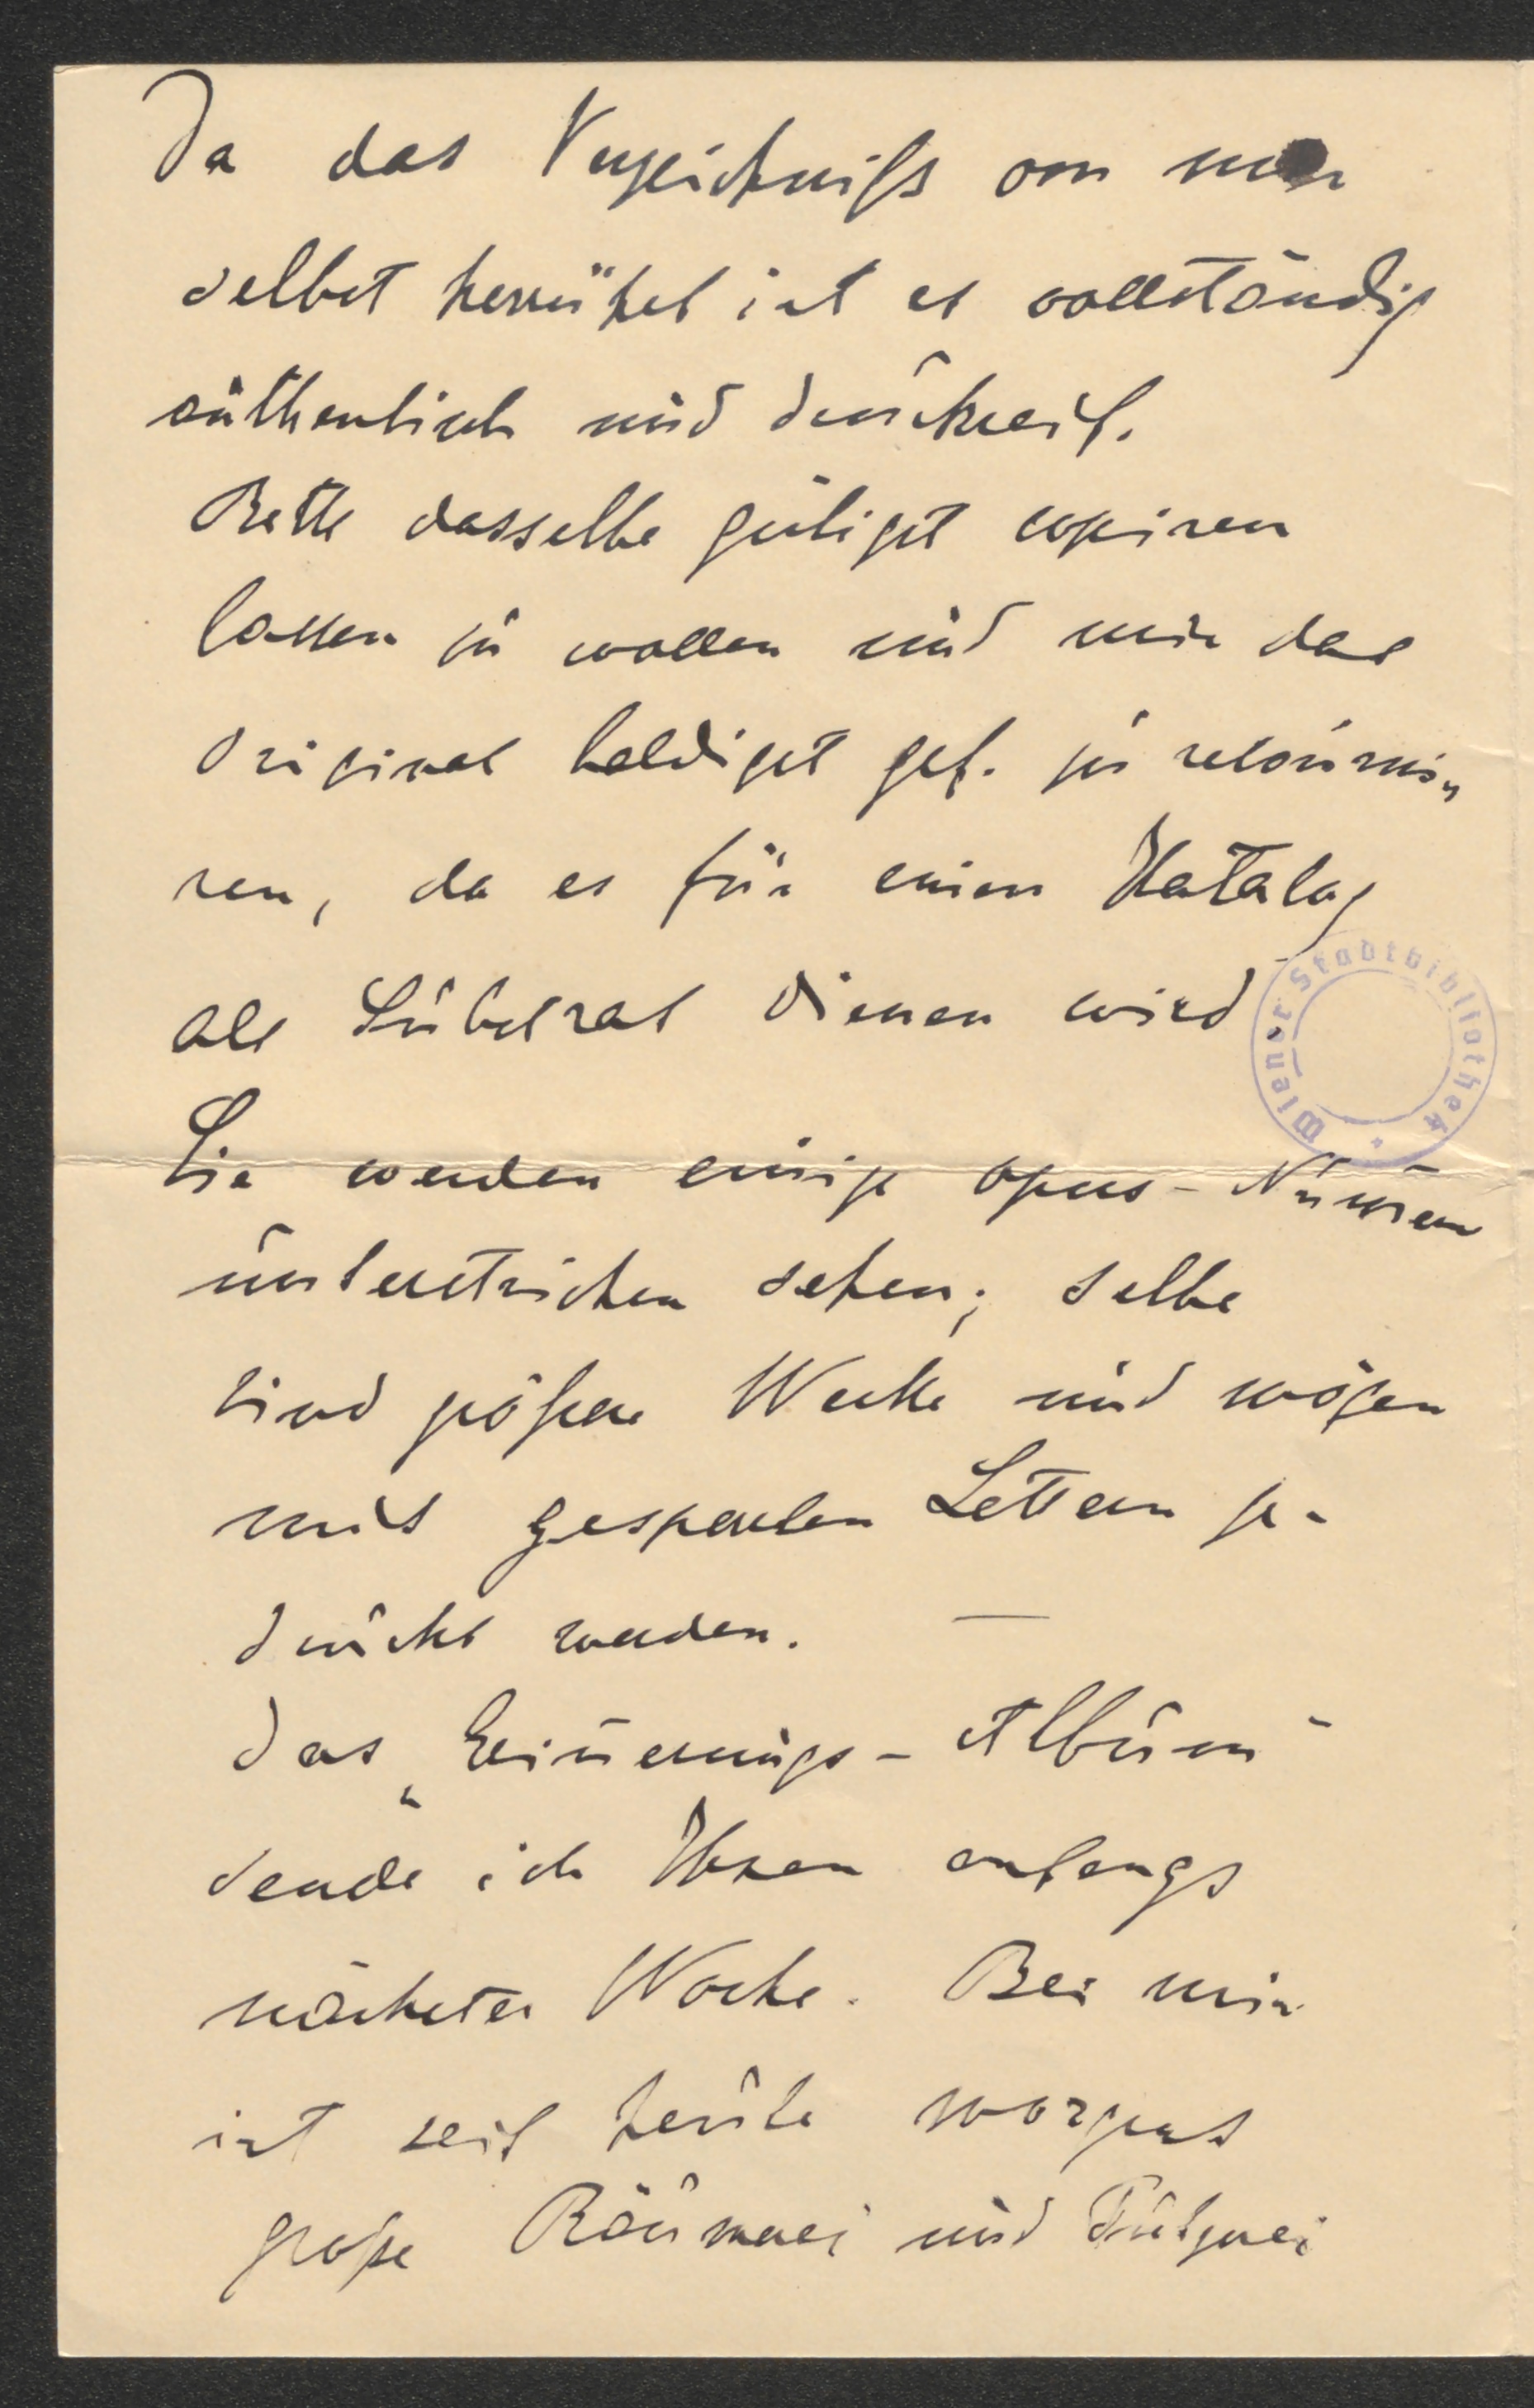 Da das Verzeichniß von mir
selbst herrührt ist es vollständig
authentisch und druckreif.
Bitte dasselbe gütigst copiren
lassen zu wollen und mir das
Original baldigst gef. zu retourni„
ren, da es für einen Katalog
als Substrat dienen wird
Wiener Stadtbibliothek
Sie werden einige opus-Numern
unterstrichen sehen; selbe
sind größere Werke und mögen
mit gesperrten Lettern ge-
druckt werden. —
Das „Erinerungs-Album“
sende ich Ihnen anfangs
nächster Woche. Bei mir
ist seit heute morgens
große Räumerei und Putzerei